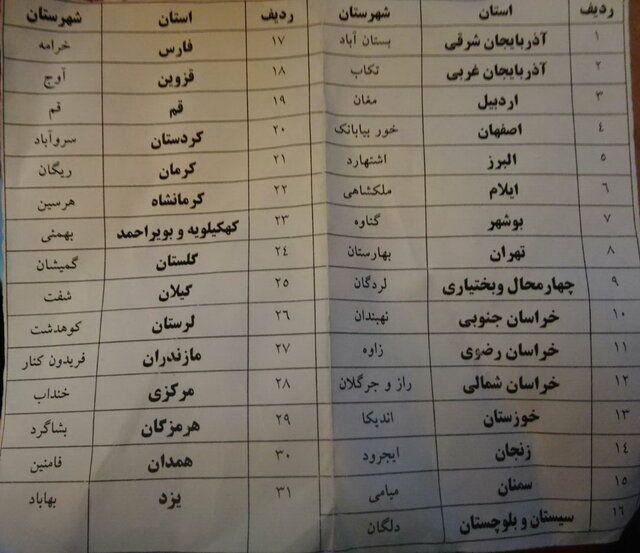 ردیف استان شهرستان
۱ آذربایجان شرقی بستان آباد
۲ آذربایجان غربی تکاب
۳ اردبیل مغان
۴ اصفهان خور بیابانک
۵ البرز اشتهارد
۶ ایلام ملکشاهی
۷ بوشهر گناوه
۸ تهران بهارستان
۹ چهارمحال وبختیاری لردگان
۱۰ خراسان جنوبی نهبندان
۱۱ خراسان رضوی زاوه
۱۲ خراسان شمالی راز و جرگلان
۱۳ خوزستان اندیکا
۱۴ زنجان ایجرود
۱۵ سمنان میامی
۱۶ سیستان و بلوچستان دلگان
ردیف استان شهرستان
۱۷ فارس خرامه
۱۸ قزوین آوج
۱۹ قم قم
۲۰ کردستان سروآباد
۲۱ کرمان ریگان
۲۲ کرمانشاه هرسین
۲۳ کهکیلویه و بویراحمد بهمئی
۲۴ گلستان گمیشان
۲۵ گیلان شفت
۲۶ لرستان کوهدشت
۲۷ مازندران فریدون کنار
۲۸ مرکزی خنداب
۲۹ هرمزگان بشاگرد
۳۰ همدان فامنین
۳۱ یزد بهاباد